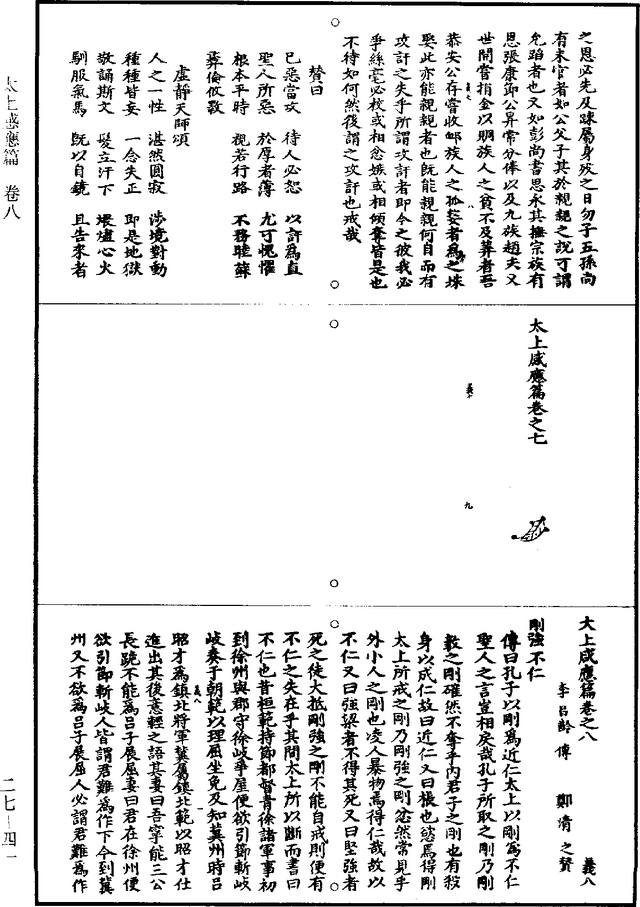 之恩必先及疎屬身歿之日勿子五孫尚
有未官者如公父子其於親親之說可謂
允蹈者也又如彭尚書思永其撫宗族有
恩張康節公昇常分俸以及九族趙夫又
世間嘗捐金以賙族人之貧不及葬者吾
恭安公存嘗收卹族人之孤㛮者為之娣
娶此亦能親親者也旣能親親何自而有
攻訐之失乎所謂攻訐者即今之彼我必
爭絲毫必校或相忿嫉或相傾奪皆是也
不待如何然後謂之攻訐也戒哉
贊曰
已惡當攻 待人必恕 以訐為直
聖人所惡 於厚者薄 尤可愧懼
根本平時 視若行路 不務睦蘇
彝倫攸斁
虛靜天師頌
人之一性 湛然圓寂 涉境對動
種種皆妄 一念失正 即是地獄
敬誦斯文 髮立汗下 煨燼心火
馴服氣馬 旣以自鏡 且告來者
太上感應篇卷之七
義七
九
太上感應篇卷之八 義八
李昌齡傳 鄭清之贊
剛強不仁
傳曰孔子以剛為近仁太上以剛為不仁
聖人之言豈相戾哉孔子所取之剛乃剛
毅之剛確然不奪乎內君子之剛也有殺
身以成仁故曰近仁又曰棖也慾焉得剛
太上所戒之剛乃剛強之剛忿然常見乎
外小人之剛也凌人暴物焉得仁哉故以
不仁又曰強梁者不得其死又曰堅強者
死之徒大抵剛強之剛不能自戒則便有
不仁之失在乎其間太上所以斷而書曰
不仁也昔桓範持節都督青徐諸軍事初
到徐州與郡守徐岐爭屋便欲引節斬岐
岐奏于朝範以理屈坐免及知冀州時呂
昭才為鎮北將軍冀屬鎮北範以昭才仕
進出其後意輕之語其妻曰吾寧能三公
長跪不能為呂子展屈妻曰君在徐州便
欲引節斬岐人皆謂君難為作下今到冀
州又不欲為呂子展屈人必謂君難為作
太上感應篇 卷八
二七—四一